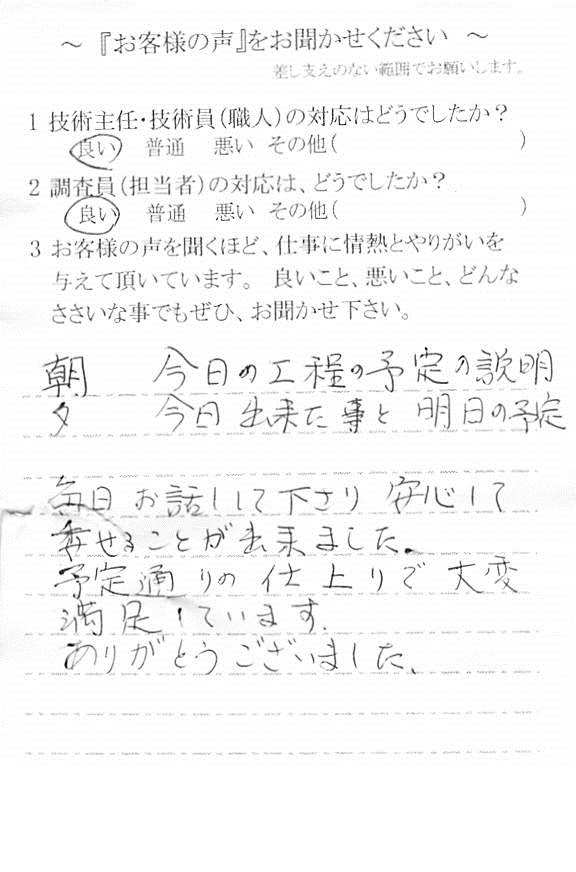 ～『お客様の声』をお聞かせください ～
差し支えのない範囲でお願いします。
1 技術主任・技術員(職人)の対応はどうでしたか？
良い 普通 悪い その他( )
2 調査員(担当者)の対応は、どうでしたか？
良い 普通 悪い その他( )
3 お客様の声を聞くほど、仕事に情熱とやりがいを
与えて頂いています。 良いこと、悪いこと、どんな
ささいな事でもぜひ、お聞かせ下さい。
朝 今日の工程の予定の説明
夕 今日出来た事と明日の予定
毎日お話しして下さり 安心して
せることが出来ました。
予定通りの仕上りで大変
満足しています.
ありがとうございました、